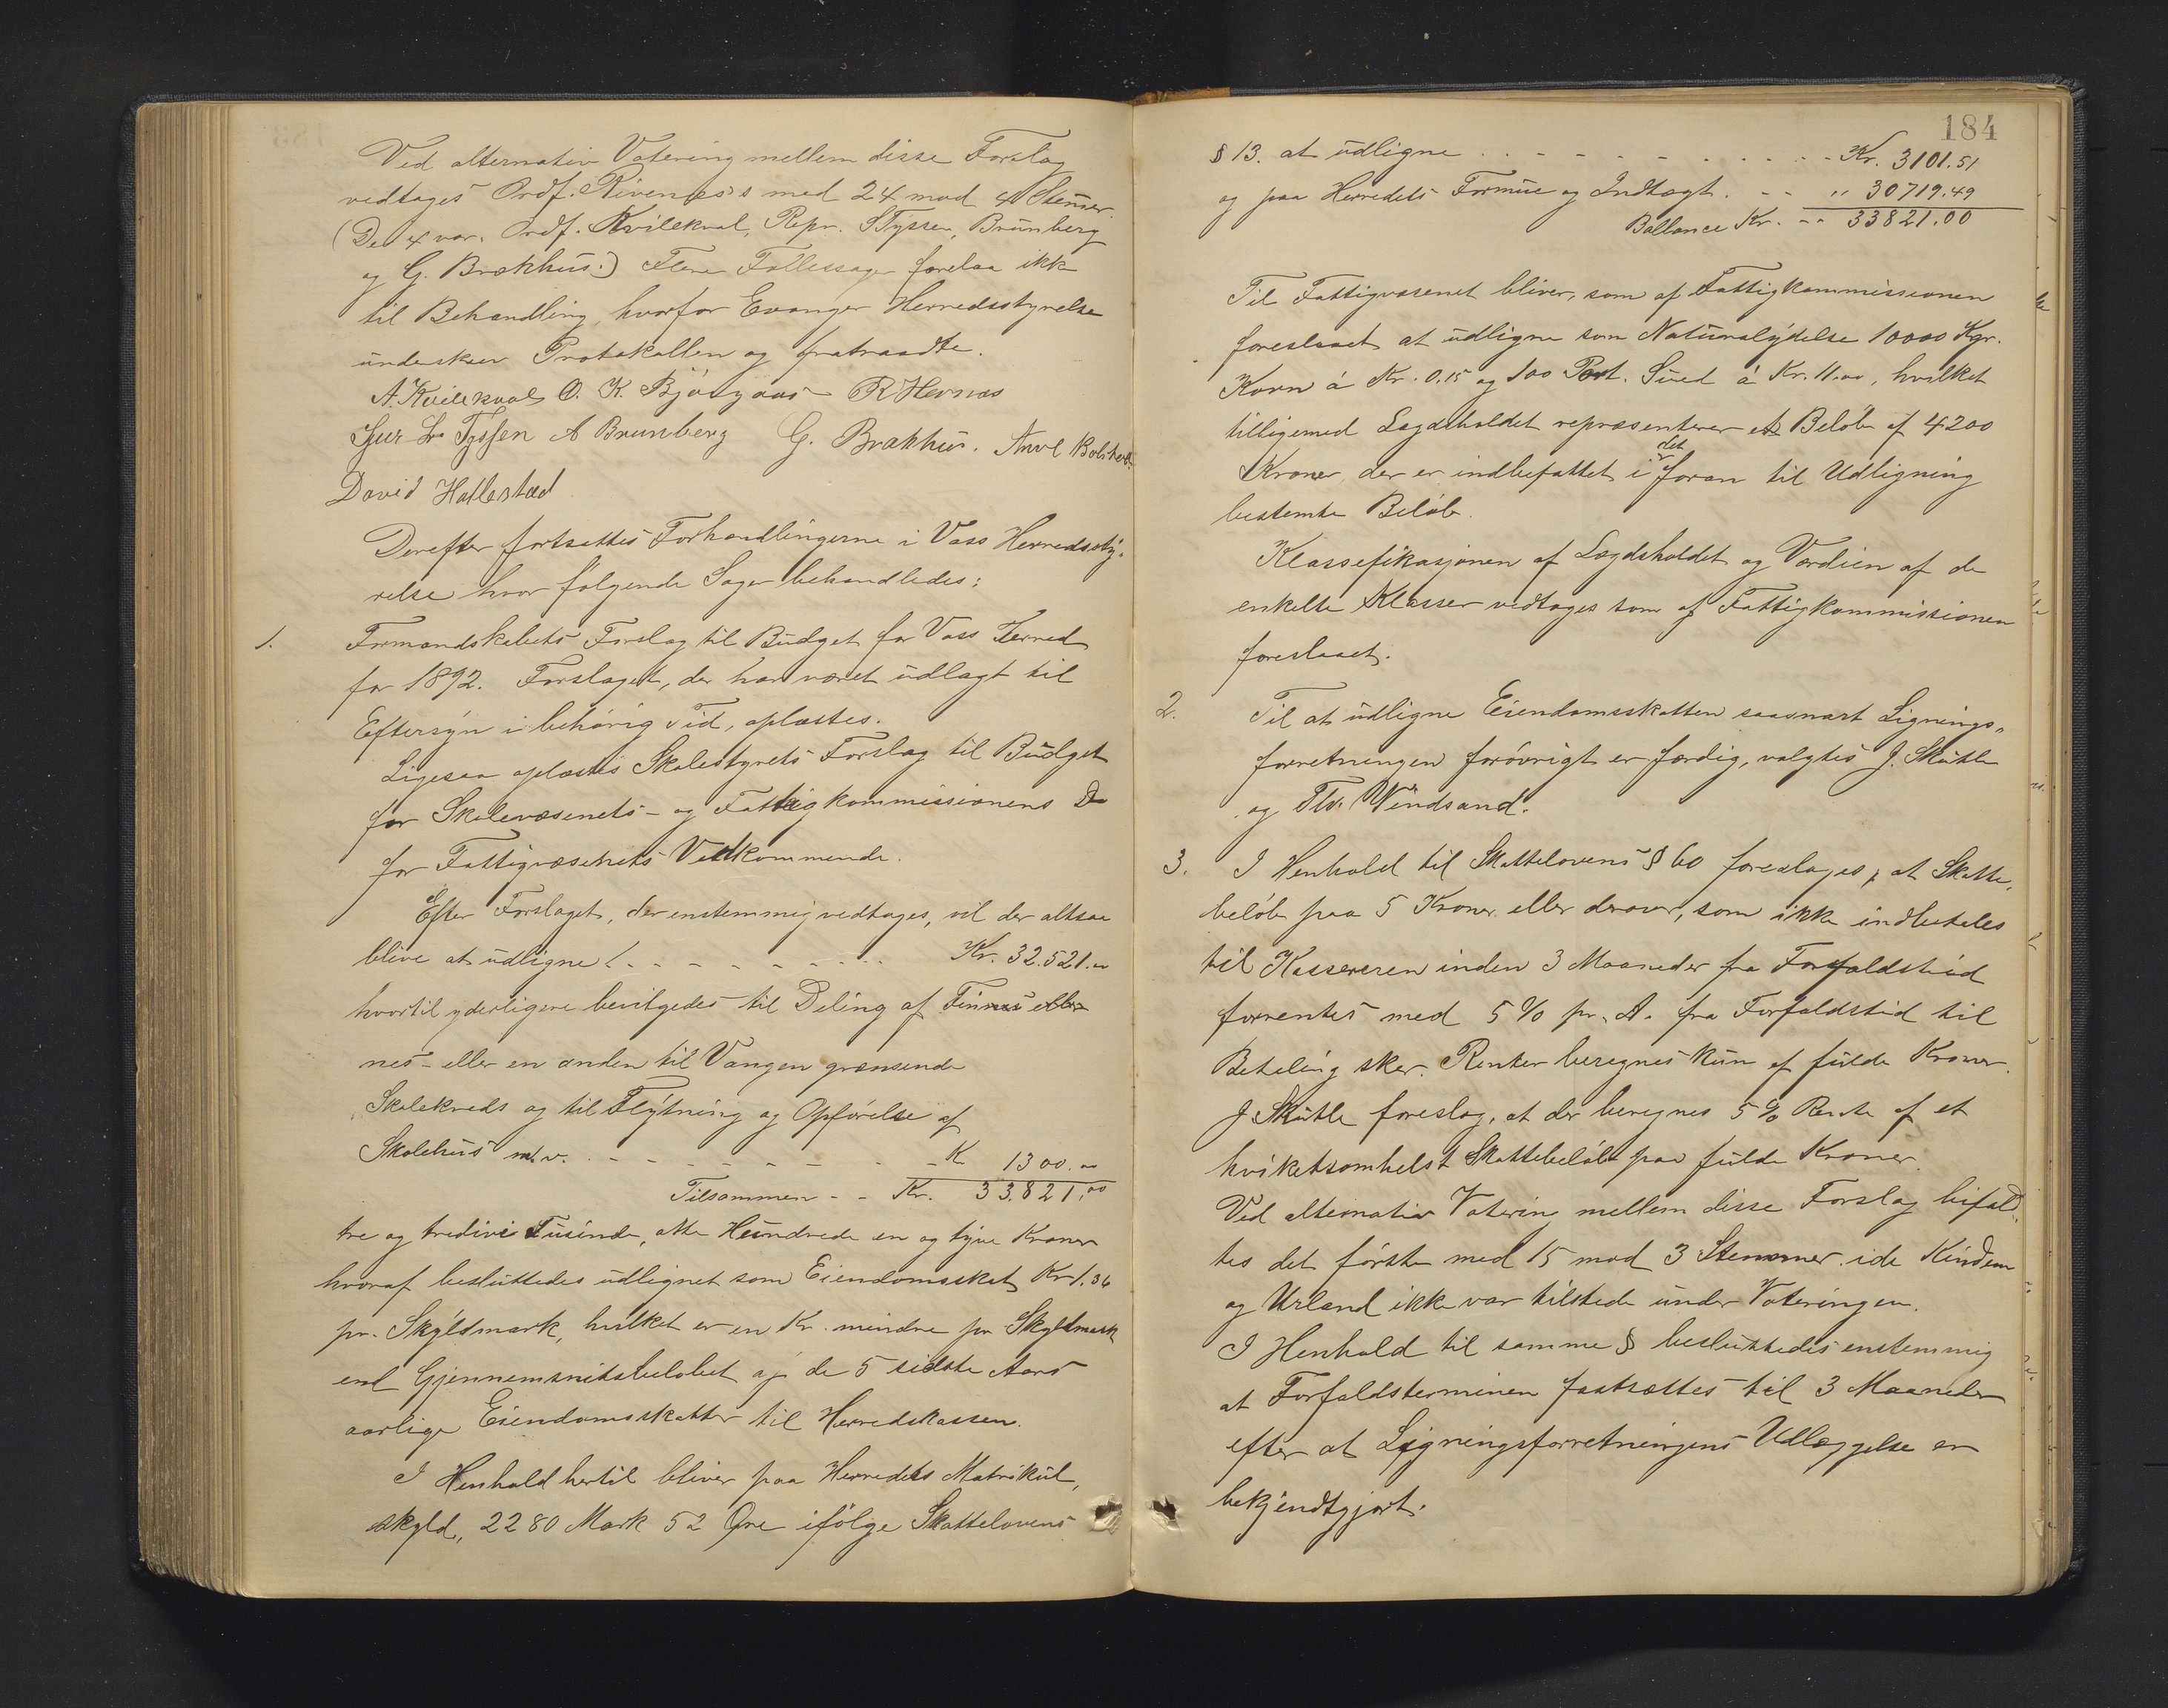 Ved alternativ Votering mellem disse Forslag
vedtages Ordf. Rivenæs's med 24 mod 4 Stemer.
(De 4 var. Ordf. Kvilekval, Repr. S Tyssen, Brunberg
og G. Brækhus.) Flere Fællessager forelaa ikke
til Behandling, hvorfor Evanger Herredsstyrelse
underskrev Protokollen og fratraadte.
A. Kvilekval O. K. Bjørgaas R Hernæs
Sjur L. Tyssen A Brunberg G. Brækhus. Anve Bolstad
David Hallestad
Derefter fortsattes Forhandlingerne i Voss Herredssty-
relse hvor følgende Sager behandledes:
1. Formandskabets Forslag til Budget for Voss Herred
for 1892. Forslaget, der har været udlagt til
Eftersyn i behørig Tid, oplæstes.
Ligesaa oplæstes Skolestyrets Forslag til Budget
for Skolevæsenets- og Fattigkommissionens Do
for Fattigvæsenets Vedkommende.
Efter Forslaget, der enstemmig vedtages, vil der altsaa
blive at udligne Kr. 32.521.00
hvortil yderligere bevilgedes til Deling af Finnes eller
nes- eller en anden til Vangen grænsende
Skolekreds og til Flytning og Opførelse af
Skolehus m.v. - - - - K 1300.00
Tilsammen - - Kr. 33.821,00
tre og tredive Tusinde, otte Hundrede en og tyve Kroner
hvoraf besluttedes udlignet som Eiendomsskat Kr 1.36
pr. Skyldmark, hvilket er en Kr. mindre pr Skyldmark
end Gjennemsnitsbeløbet af de 5 sidste Aars
aarlige Eiendomsskatter til Herredskassen.
I Henhold hertil bliver paa Herredets Matrikul,
skyld, 2280 Mark 52 Øre ifølge Skattelovens
184
§ 13. at udligne - - - - Kr. 3101.51
og paa Herredets Formue og Indtægt. - - " 30719.49
Ballance Kr. - - 33821.00
Til Fattigvæsenet bliver, som af Fattigkommissionen
foreslaaet at udligne som Naturalydelse 10000 Kgr.
Korn á Kr. 0.15 og 100 Port. Sued á Kr. 11.00, hvilket
tilligemed Lægdeholdet repræsenterer et Beløb af 4200
Kroner, der er indbefattet i det foran til Udligning
bestemte Beløb.
Klassefikasjonen af Lægdsholdet og Værdien af de
enkelte Klasser vedtages som af Fattigkommissionen
foreslaaet.
2. Til at udligne Eiendomsskatten saasnart Lignings-
forretningen forøvrigt er færdig, valgtes J. Skutle
og Tlv. Windsand.
3. I Henhold til Skattelovens § 60 foreslages, at Skatte,
beløb paa 5 Kroner eller derover, som ikke indbetales
til Kassereren inden 3 Maaneder fra Forfaldstid
forrentes med 5 % pr. A. fra Forfaldstid til
Betaling sker. Renter beregnes kun af fulde Kroner.
J. Skutle foreslog, at der beregnes 5 % Rente af et
hvilketsomhelst Skattebeløb paa fulde Kroner.
Ved alternativ Voterin mellem disse Forslag bifald,
tes det første med 15 mod 3 Stemmer. ide Kindem
og Urland ikke var tilstede under Voteringen.
I Henhold til samme § besluttedes enstemmig
at Forfaldsterminen fastsættes til 3 Maaneder
efter at Ligningsforretningens Udlæggelse er
bekjendtgjort.